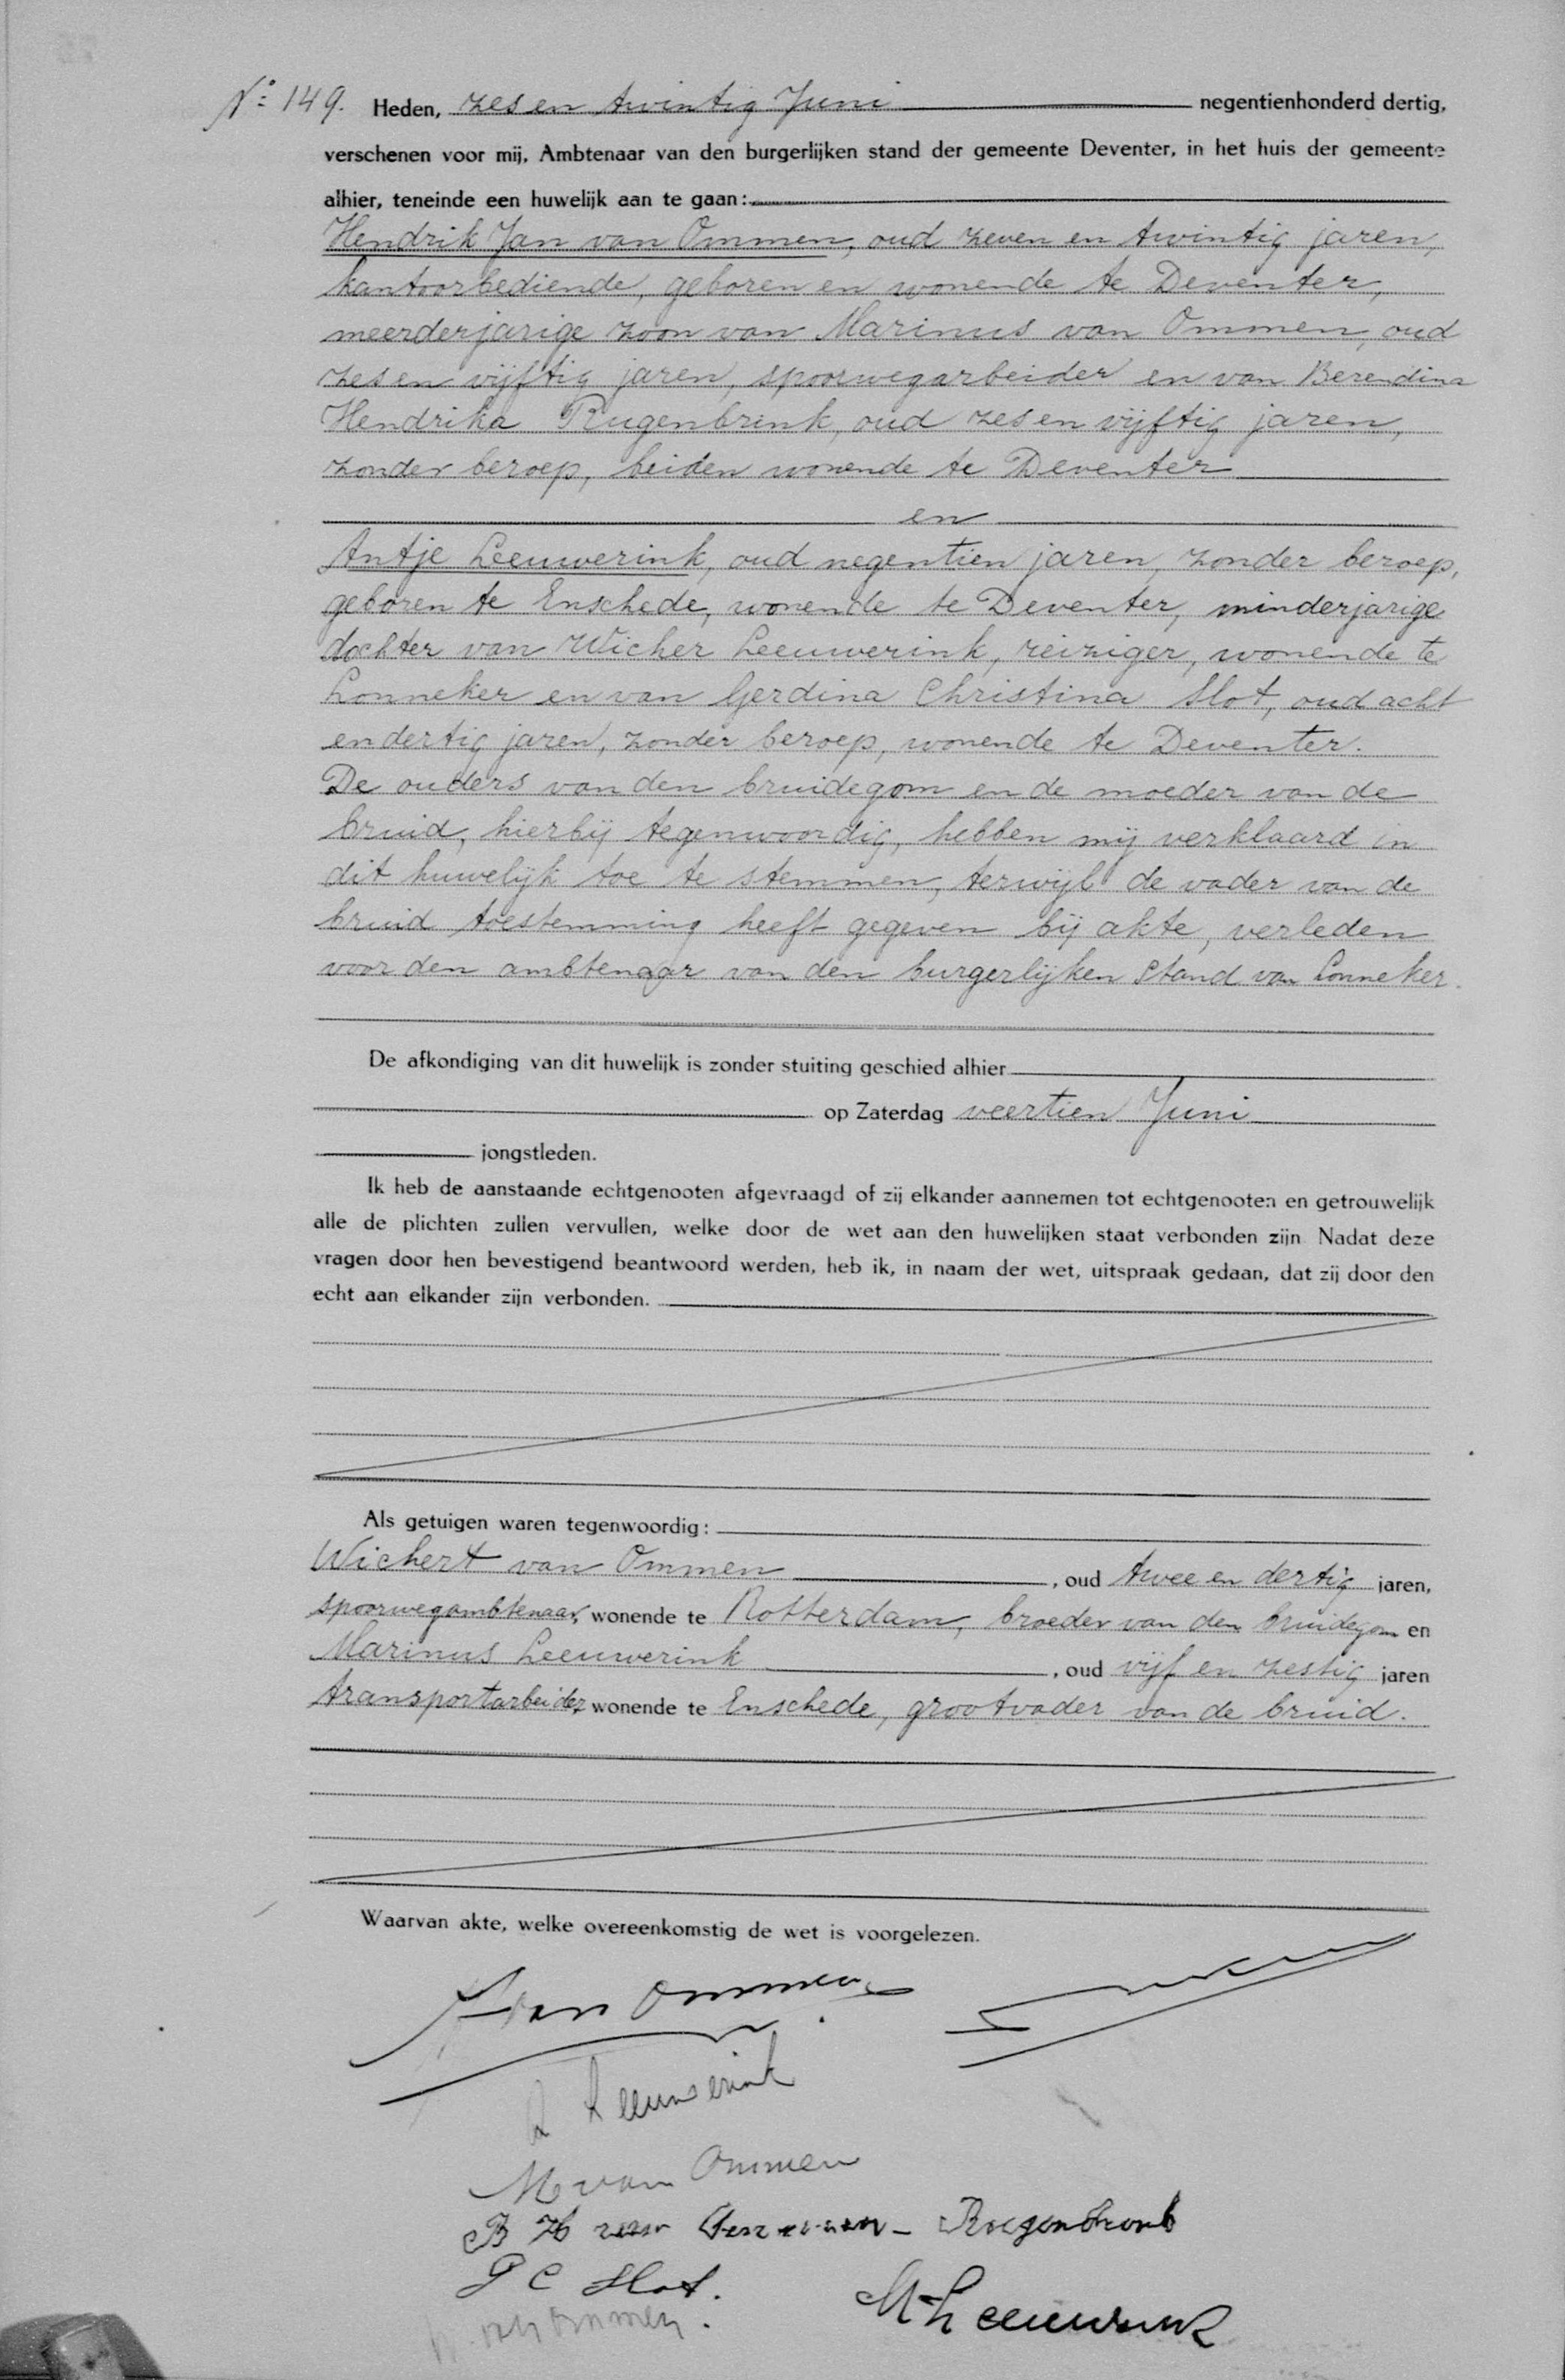 No: 149. Heden, zes en twintig Juni negentienhonderd dertig,
verschenen voor mij, Ambtenaar van den burgerlijken stand der gemeente Deventer, in het huis der gemeente
alhier, teneinde een huwelijk aan te gaan:
Hendrik Jan van Ommen, oud zeven en twintig jaren,
kantoorbediende, geboren en wonende te Deventer,
meerderjarige zoon van Marinus van Ommen, oud
zes en vijftig jaren, spoorwegarbeider en van Berendina
Hendrika Rugenbrink, oud zes en vijftig jaren,
zonder beroep, beiden wonende te Deventer
en
Antje Leeuwerink, oud negentien jaren, zonder beroep,
geboren te Enschede, wonende te Deventer, minderjarige
dochter van Wicher Leeuwerink, reiziger, wonende te
Lonneker en van Gerdina Christina Slot, oud acht
en dertig jaren, zonder beroep, wonende te Deventer.
De ouders van den bruidegom en de moeder van de
bruid, hierbij tegenwoordig, hebben mij verklaard in
dit huwelijk toe te stemmen, terwijl de vader van de
bruid toestemming heeft gegeven bij akte, verleden
voor den ambtenaar van den burgerlijken stand van Lonneker.
De afkondiging van dit huwelijk is zonder stuiting geschied alhier
op Zaterdag veertien Juni
jongstleden.
Ik heb de aanstaande echtgenooten afgevraagd of zij elkander aannemen tot echtgenooten en getrouwelijk
alle de plichten zullen vervullen, welke door de wet aan den huwelijken staat verbonden zijn. Nadat deze
vragen door hen bevestigend beantwoord werden, heb ik, in naam der wet, uitspraak gedaan, dat zij door den
echt aan elkander zijn verbonden.
Als getuigen waren tegenwoordig:
Wichert van Ommen, oud twee en dertig jaren,
spoorwegambtenaar, wonende te Rotterdam, broeder van den bruidegom en
Marinus Leeuwerink, oud vijf en zestig jaren
transportarbeider, wonende te Enschede, grootvader van de bruid.
Waarvan akte, welke overeenkomstig de wet is voorgelezen.
van Ommen
A Leeuwerink
M van Ommen
B H van Ommen - Rugenbrink
G C Slot.
van Ommen.
M Leeuwerink